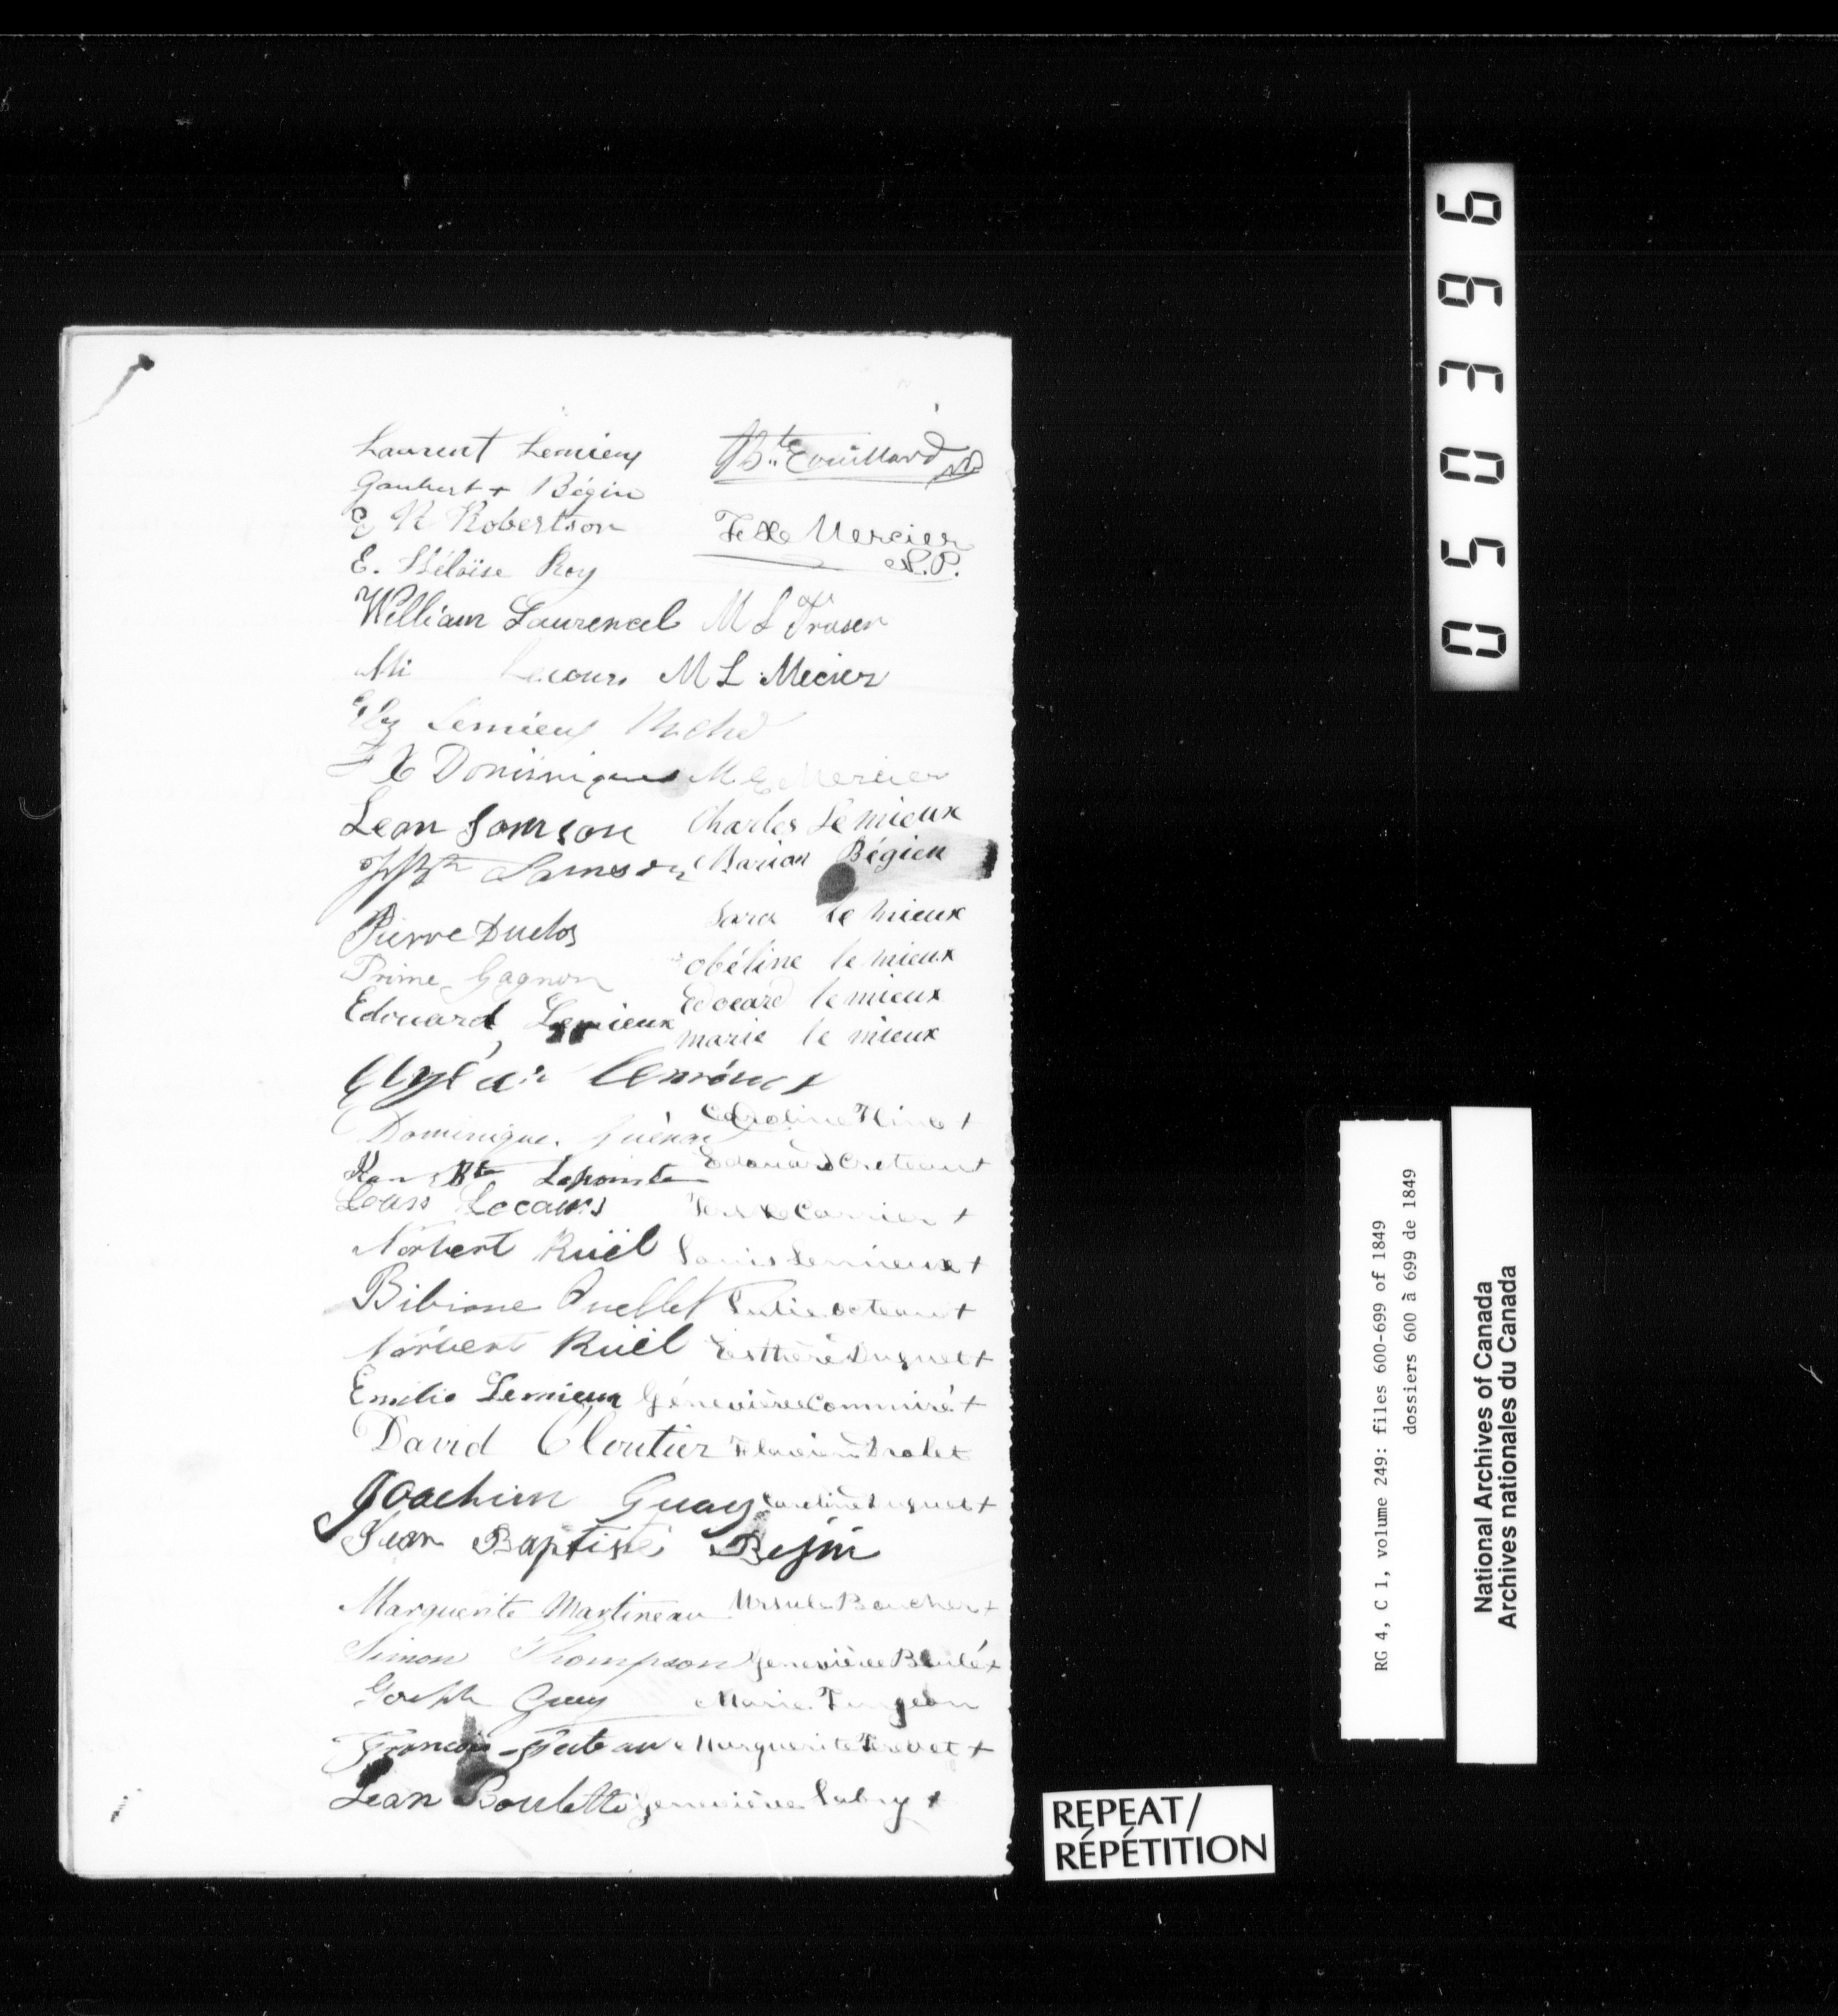 Laurent Lemieux
Gaubert + Bégin
E R Robertson
E. Héloïse Roy
William Laurencel
Lecours
Ely Lemieux
F X Dominique
Lean Samson
Samson
Pierre Duclos
Prime Gagnon
Edouard Lemieux
Dominique Guénar
Bte Lapointe
Louis Lecours
Norbert Ruël
Bibiane Ouellet
Norbert Ruël
Emilie Lemieux
David Cloutier
Joachim Guay
Jean Baptiste Bejin
Marguerite Martineau
Simon Thompson
Joseph Guay
Francois
Jean Boulette
JBte Couillard NP
Mercier
N.P.
M L Fraser
M L Mecier
M E Mercier
Charles Lemieux
Marion Bégien
Sara le mieux
obéline le mieux
Edoeard le mieux
marie le mieux
Caroline +
Edouard Croteau +
Carrier +
Louis Lemieux +
Julie +
Esthère Duguet +
Génevière Commiré +
Drolet
Caroline Duguet +
Ursule Boucher +
Genevière Boulé +
Marie Turgeon
Marguerite +
Genevière +
0 5 0 3 9 6
RG 4, C 1, volume 249: files 600-699 of 1849
dossiers 600 à 699 de 1849
National Archives of Canada
Archives nationales du Canada
REPEAT/
RÉPÉTITION